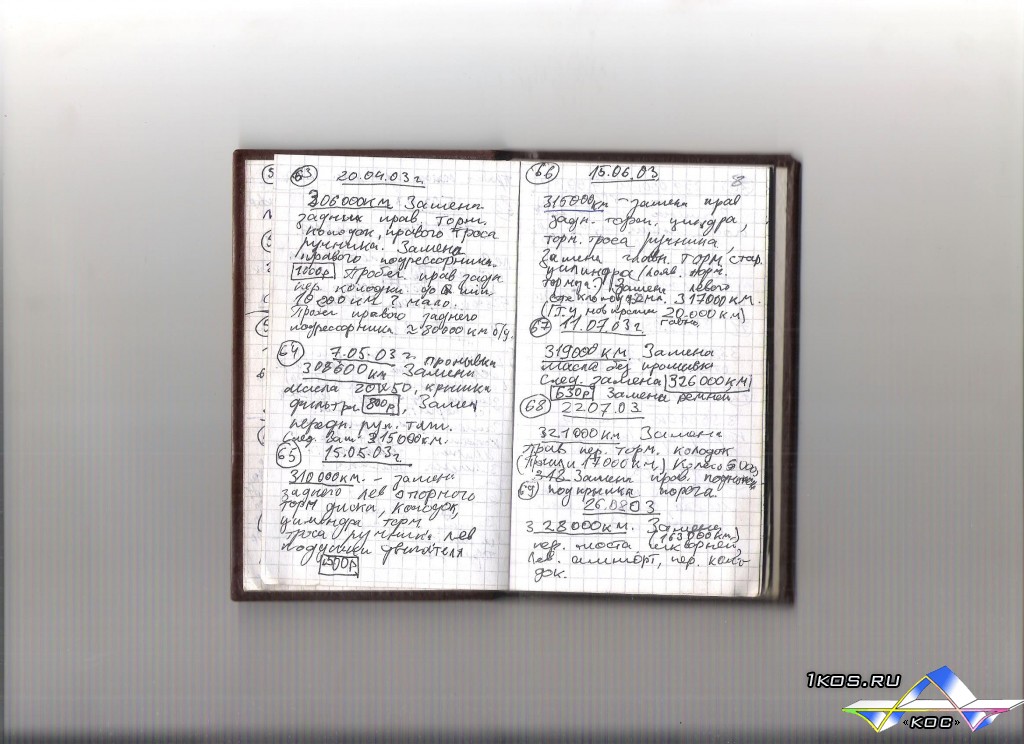 63 20.04.03г.
306000км Замена
задних прав. торм.
колодок, правого троса
ручника. Замена
правого подрессорника.
1000р Пробег прав задн
пер. колодки до
16000км? мало.
Пробег правого заднего
подрессорника 280000 км б/у.
64 7.05.03г. промывка
308600км Замена
масла 20W50, крышка
фильтра 800р, Замен
передн. рул. тяги.
След. Зам. 315000км.
65 15.05.03г.
310000км. – замена
заднего лев опорного
торм диска, колодок,
цилиндра торм
троса ручника лев
подушки двигателя
500р
66 15.06.03 8
315000км – замена прав
задн. торм. цилндра,
торм. троса ручника,
Замена главн. торм. стар.
цилиндра
Замена левого
317000км.
20.000км)
67 11.07.03г
319000км. Замена
масла без промывки
След. замена 326000км
630р Замена ремней
68 22.07.03
321000км Замена
прав пер. торм. колодок
(Прошли 17000км) Колесо
Замена прав.
69 подкрылка порога
26.08.03
328000км. Замена
(163000км)
пер. моста шкворней,
Лев. аморт, пер. коло-
док.
1KOS.RU
«КОС»